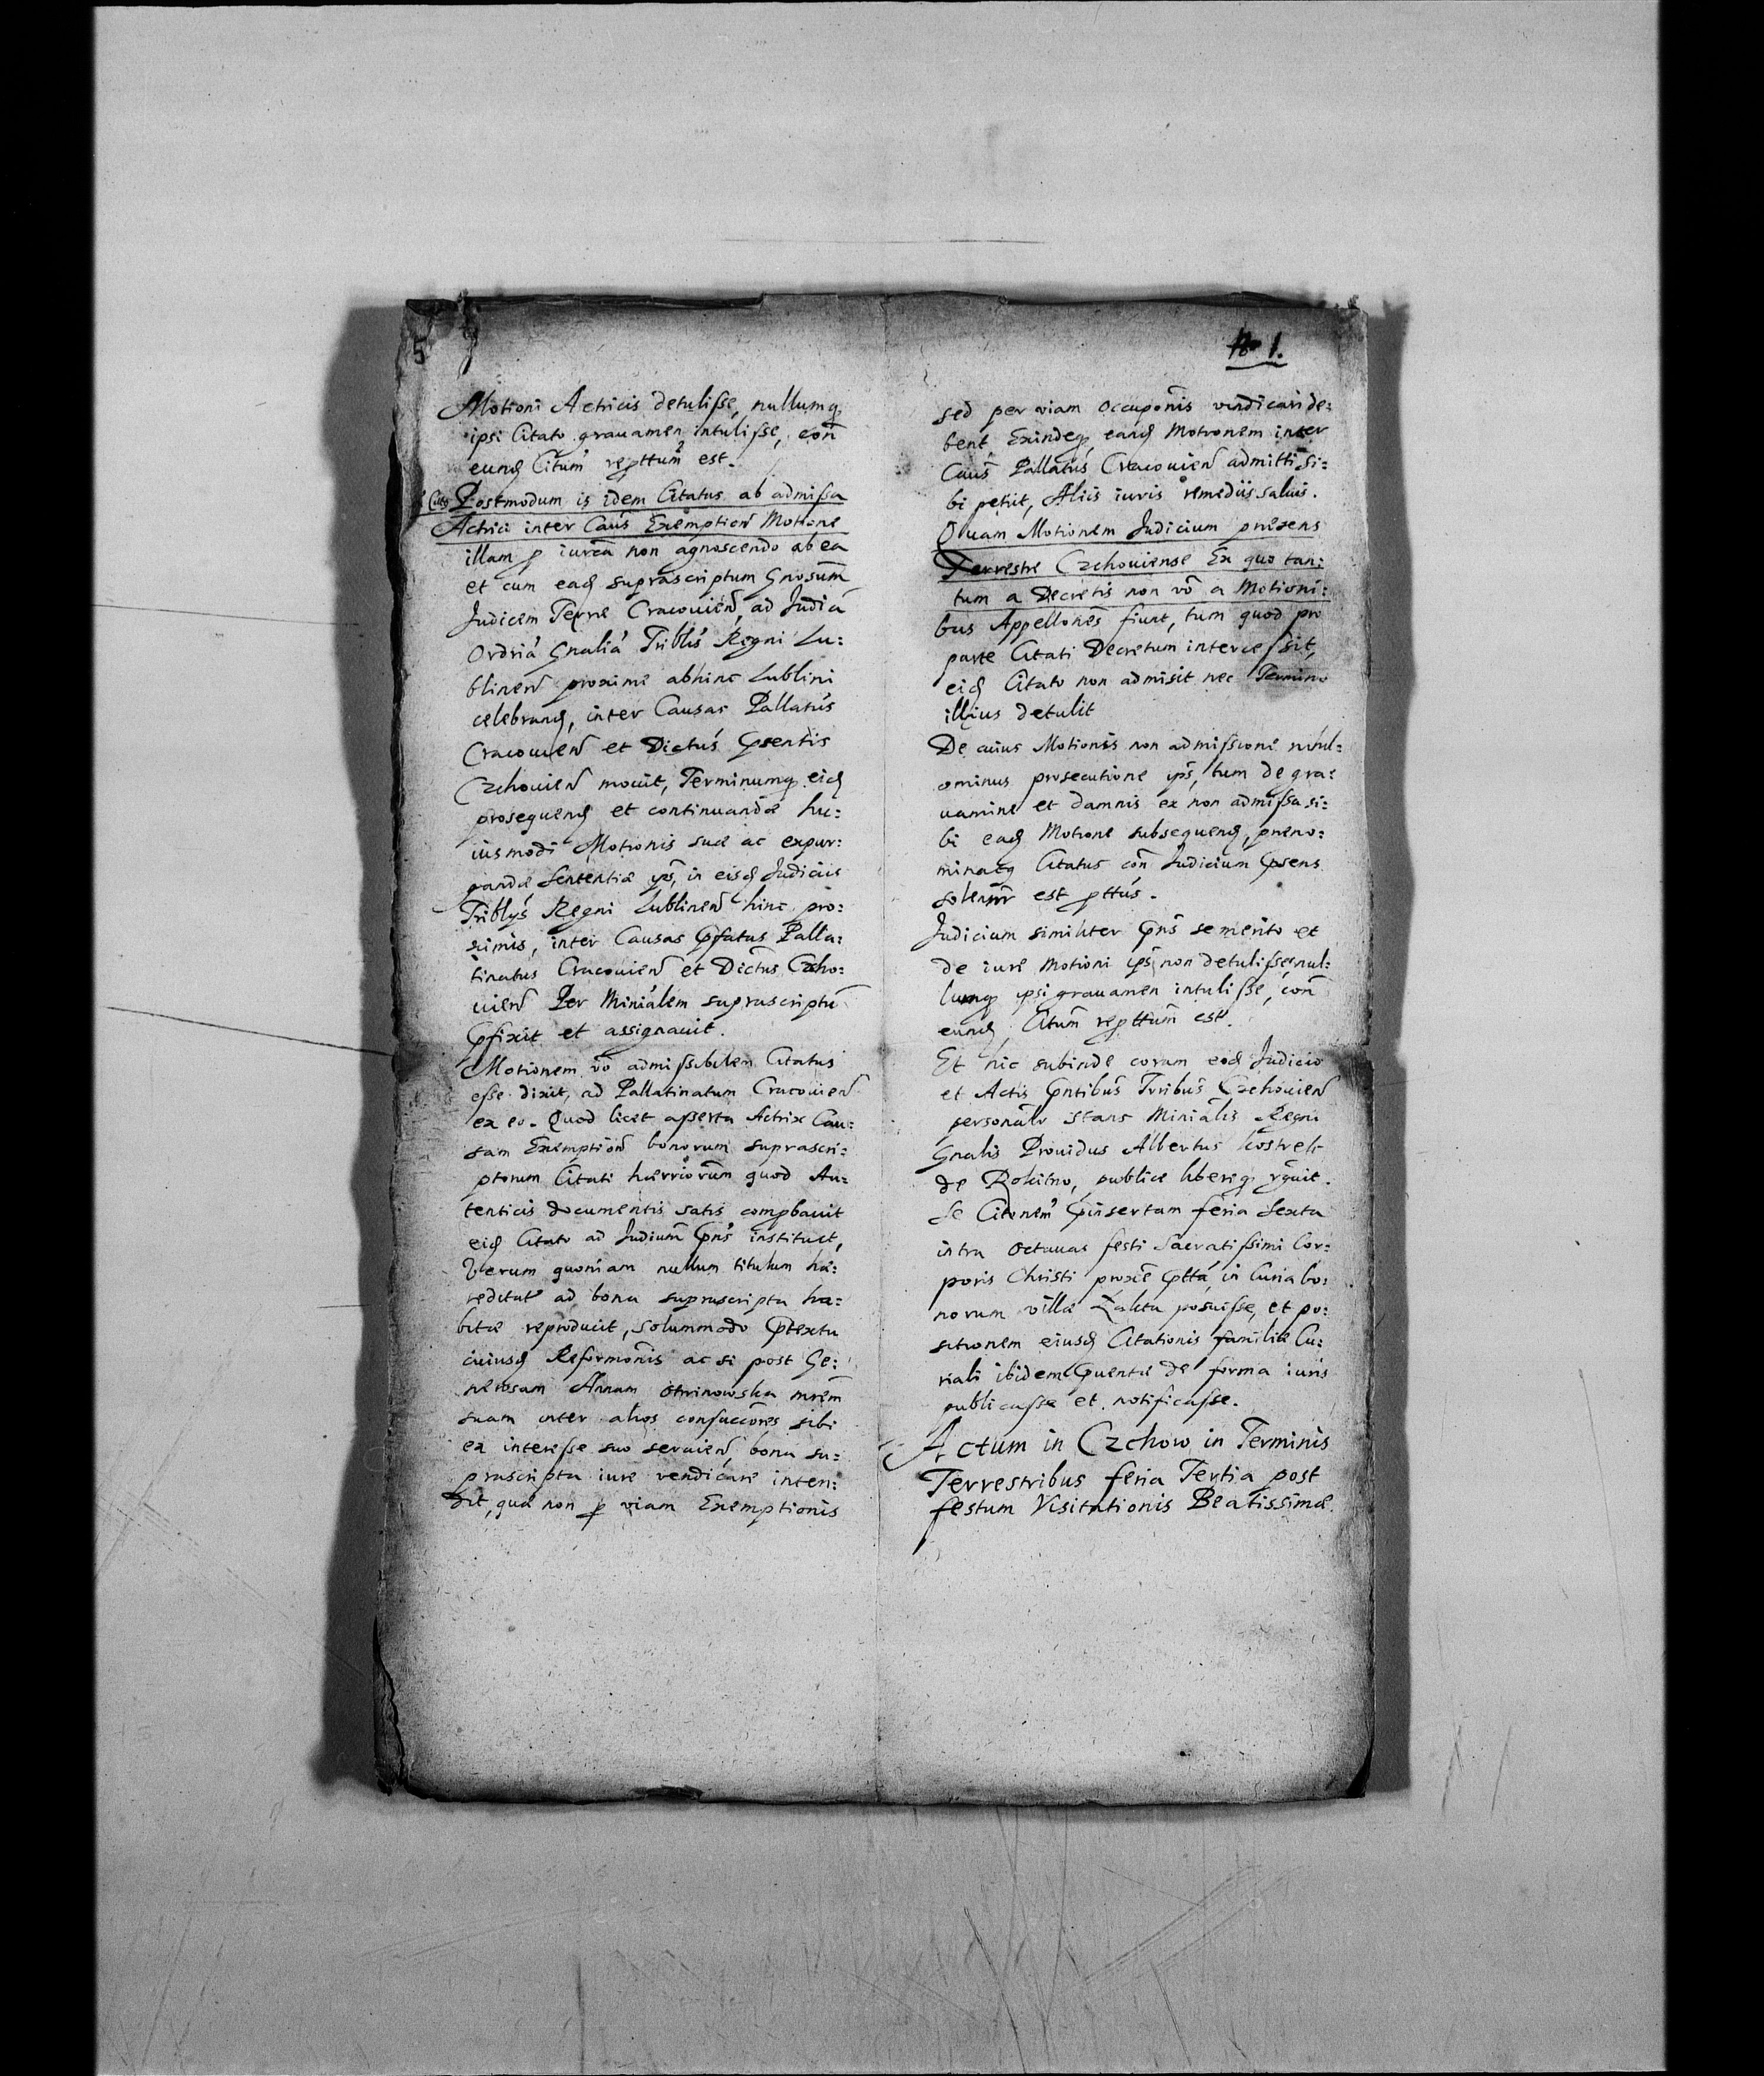 5
Motioni Actricis detulisse, nullumq
ipsi Citato grauamen intulisse, con̄
eund Citum̄ repttum̄ est.
Postmodum is idem Citatus ab admissa
Actrici inter Caus̄ Exemption Motione
illam p iurēa non agnoscendo ab ea
et cum ead suprascriptum Gnosum̄
Judicem Terræ Cracouien, ad Judiā
Ordriā Gnaliā Triblis̄ Regni Lu:
blinen proxime abhinc Lublini
celebrand, inter Causas Pallatus̄
Cracouien et Dictus̄ Pſentis
Czchouien mouit, Terminumq eid
prosequend et continuandæ hu:
iusmodi Motionis suæ ac expur:
gandæ Sententiæ ips̄, in eisd Judiciis
Triblys̄ Regni Lublinen hinc pro:
ximis, inter Causas Pfatus Palla:
tinatus Cracouien et Dictus̄ Czcho:
uien Per Miniālem suprascriptū
Pfixit et assignauit.
Motionem vō admissibilem Citatus
esse dixit, ad Pallatinatum Cracouien
ex eo. Quod licet asserta Actrix Cau:
sam Exemptiōn bonorum suprascri:
ptorum Citati hærriorūm quod Au:
tenticis documentis satis compbauit
eid Citato ad Judium̄ Pns̄ instituit,
Verum quoniam nullum titulum hæ:
reditat̄ ad bona suprascripta ha:
bitæ reproducit, solummodo Ptextu
cuiusd Reformōnis ac si post Ge:
nerosam Annam mrēm
suam inter alios consuccōres sibi
ex interesse suo seruien, bona su:
prascripta iure vendicare inten:
dit, quæ non p viam Exemptionis
No 1.
sed per viam Occupōnis vendicari de:
bent Exindeq eand Motionem inter
Caus̄ Pallatus̄ Cracouien admitti si:
bi petiit, Aliis iuris remediis saluis.
Quam Motionem Judicium præsens
Terrestre Czchouiense Ex quo tan:
tum a Decretis non vō a Motioni:
bus Appellōnes fiunt, tum quod pro
parte Citati Decretum intercessit,
eid Citato non admisit nec Termino
illius detulit
De cuius Motionis non admissione nihil:
ominus prosecutione ips̄, tum de gra:
uamine et damnis ex non admissa si:
bi ead Motione subsequend, præno:
minatq Citatus con̄ Judicium Psens
solenr̄ est pttus̄.
Judicium similiter Pns̄ se merito et
de iure Motioni ips̄ non detulisse, nul:
lumq ipsi grauamen intulisse, con̄
eund Citum̄ repttum̄ est.
Et hic subinde coram eod Judicio
et Actis Pntibus̄ Trribus̄ Czchouien
personālr stans Miniālis Regni
Gnalis Prouidus Albertus
de Rokitno, publice libereq rg̃uit.
Se Citōnem̄ Pinsertam feria Sexta
intra octauas festi Sacratissimi Cor:
poris Christi proxie Pttā in Curia bo:
norum villæ Zalita posuisse, et po:
sitionem eiusd Citationis familiæ Cu:
riali ibidem Puentæ de forma iuris
publicasse et notificasse.
Actum in Czchow in Terminis
Terrestribus feria Tertia post
festum Visitationis Beatissimæ